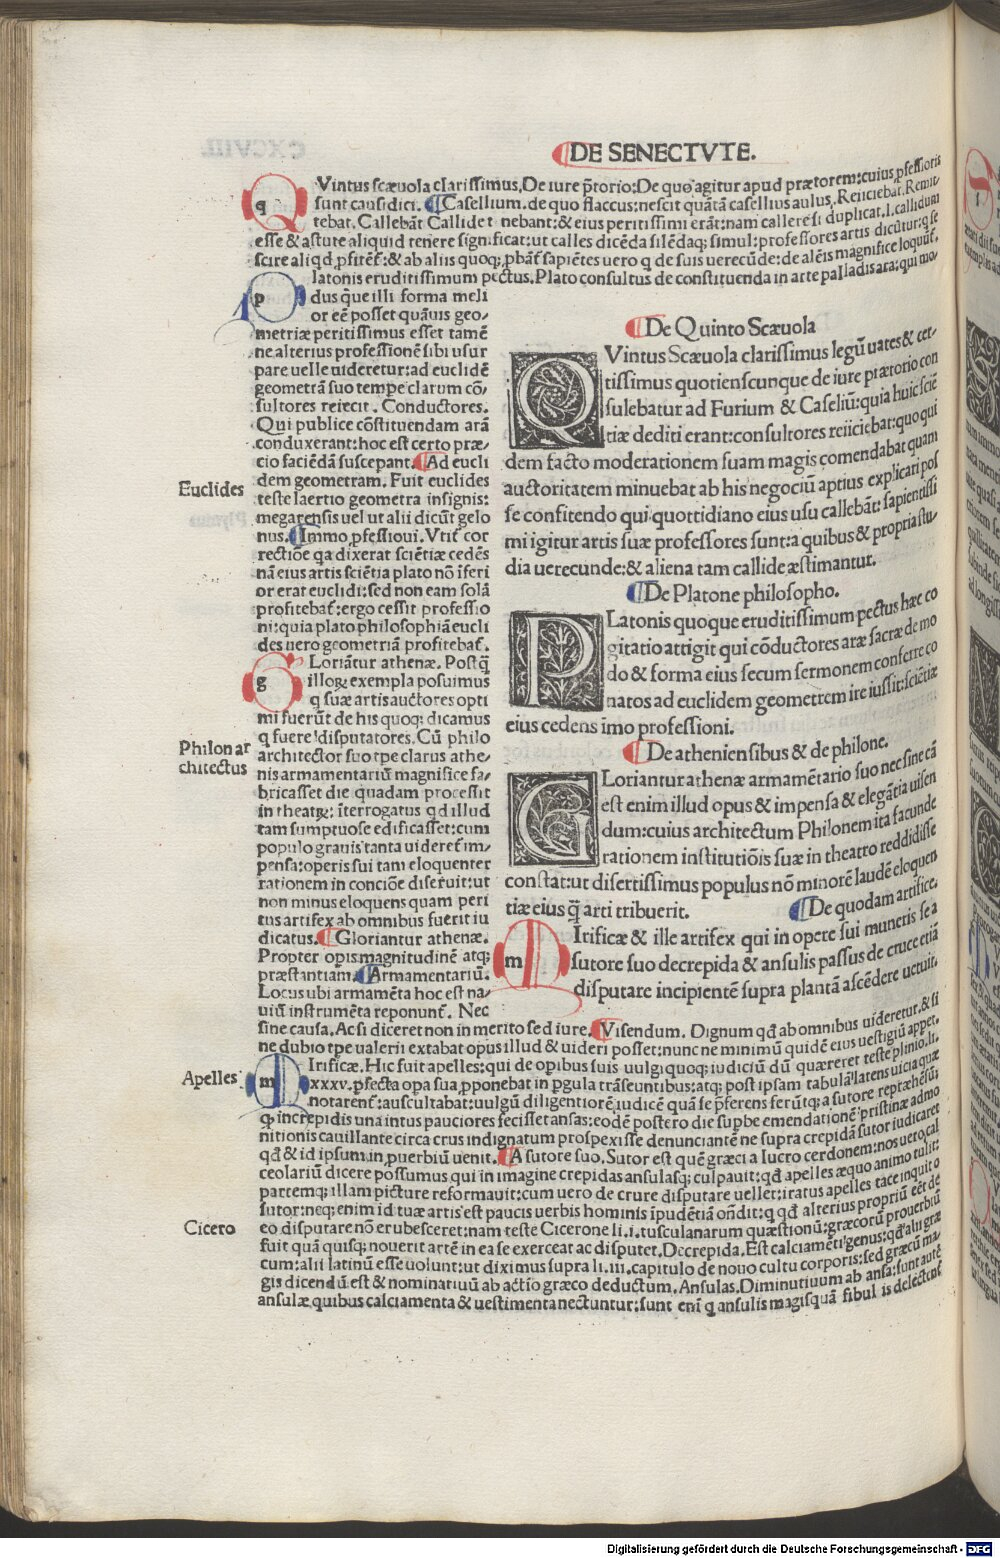 DE SENECTVTE.
QVintus scæuola clarissimus. De iure p̄torio: De quo agitur apud prætorem: cuius ꝓfessoris
sunt causidici. Casellium. de quo flaccus: nescit quātā casellius aulus. Reiiciebat. Remit
tebat. Callebāt Callide tenebant: & eius peritissimi erāt: nam callere si duplicat. l. callidum
esse & astute aliquid tenere significat: ut calles dicēda silēdaq; simul: professores artis dicūtur: q se
scire aliqd ꝓfitēt: & ab aliis quoq; ꝓbāt sapiētes uero q de suis uerecūde: de aleis magnifice loquūt.
Platonis eruditissimum pectus. Plato consultus de constituenda in arte palladis ara: qui mo
dus q̄ue illi forma meli
or eē posset quāuis geo-
metriæ peritissimus esset tamē
ne alterius professionē sibi usur
pare uelle uideretur: ad euclidē
geometrā suo tempe clarum cō-
sultores reiecit. Conductores.
Qui publice cōstituendam arā
conduxerant: hoc est certo præ-
cio faciēdā susceperant. Ad eucli
dem geometram. Fuit euclides
Euclides
teste laertio geometra insignis:
megarensis uel ut alii dicūt gelo
nus. Immo ꝓfessioni. Vtit cor
rectiōe qa dixerat sciētiæ cedēs
nā eius artis sciētia plato nō iferi
or erat euclidi: sed non eam solā
profitebat: ergo cessit professio
ni: quia plato philosophiā eucli
des uero geometriā profitebat.
GLoriātur athenæ. Postq̄
illoꝝ exempla posuimus
q suæ artis auctores opti
mi fuerūt de his quoq; dicamus
q fuere disputatores. Cū philo
Philon ar
chitectus
architector suo tpe clarus athe-
nis armamentariū magnifice fa-
bricasset die quadam processit
in theatꝝ: īterrogatus qd illud
tam sumptuose edificasset: cum
populo grauis tanta uideret im-
pensa: operis sui tam eloquenter
rationem in conciōe diseruit: ut
non minus eloquens quam peri
tus artifex ab omnibus fuerit iu
dicatus. Gloriantur athenæ.
Propter opis magnitudinē atq;
præstantiam. Armamentariū.
Locus ubi armamēta hoc est na-
uiū instrumēta reponunt. Nec
De Quinto Scæuola
QVintus Scæuola clarissimus legū uates & cer-
tissimus quotienscunque de iure prætorio con
sulebatur ad Furium & Caseliū: quia huic sciē
tiæ dediti erant: consultores reiiciebat: quo qui
dem facto moderationem suam magis comendabat quam
auctoritatem minuebat ab his negociū aptius explicari pos
se confitendo qui quottidiano eius usu callebāt: sapientissi
mi igitur artis suæ professores sunt: a quibus & propria stu-
dia uerecunde: & aliena tam callide æstimantur.
De Platone philosopho.
PLatonis quoque eruditissimum pectus hæc co
gitatio attigit qui cōductores aræ sacræ de mo
do & forma eius secum sermonem conferre co
natos ad euclidem geometrem ire iussit: sciētiæ
eius cedens imo professioni.
De atheniensibus & de philone.
GLoriantur athenæ armamētario suo nec sine cā
est enim illud opus & impensa & elegātia uisen
dum: cuius architectum Philonem ita facunde
rationem institutiōis suæ in theatro reddidisse
constat: ut disertissimus populus nō minorē laudē eloquen
tiæ eius q̄ arti tribuerit.
De quodam artifice.
MIrificæ & ille artifex qui in opere sui muneris se a
sutore suo decrepida & ansulis passus de cruce etiā
disputare incipientē supra plantā ascēdere uetuit.
sine causa. Ac si diceret non in merito sed iure. Visendum. Dignum qd ab omnibus uideretur. & si
ne dubio tpe ualerii extabat opus illud & uideri posset: nunc ne minimū quidē eius uestigiū appet.
Apelles
MIrificæ. Hic fuit apelles: qui de opibus suis uulgi quoq; iudiciū dū quæreret teste plinio. li.
xxxv. ꝑfecta opa sua ꝓponebat in pgula trāseuntibus: atq; post ipsam tabulā latens uicia quæ
notarent: auscultabat: uulgū diligentiorē iudicē quā se pferens ferūtq; a sutore repræhēsū
q increpidis una intus pauciores fecisset ansas: eodē postero die supbe emendationē pristinæ admo
nitionis cauillante circa crus indignatum prospexisse denunciantē ne supra crepidā sutor iudicaret
qd & id ipsum in ꝓuerbiū uenit. A sutore suo. Sutor est quē græci a lucro cerdonem: nos uero cal
ceolariū dicere possumus qui in imagine crepidas ansulasq; culpauit: qd apelles æquo animo tulit:
partemq; illam picture reformauit: cum uero de crure disputare uellet: iratus apelles tace inquit o
sutor: neq; enim id tuæ artis est paucis uerbis hominis īpudētiā oñdit: q qd alterius propriū eēt de
Cicero
eo disputare nō erubesceret: nam teste Cicerone li. i. tusculanarum quæstionū: græcorū prouerbiū
fuit quā quisq; nouerit artē in ea se exerceat ac disputet. Decrepida. Est calciamēti genus: qd alii græ
cum: alii latinū esse uolunt: ut diximus supra li. iii. capitulo de nouo cultu corporis: sed græcū ma-
gis dicendū est & nominatiuū ab actio græco deductum. Ansulas. Diminutiuum ab ansa: sunt autē
ansulæ quibus calciamenta & uestimenta nectuntur: sunt enī q ansulis magis quā fibulis delectent
Digitalisierung gefördert durch die Deutsche Forschungsgemeinschaft - DFG